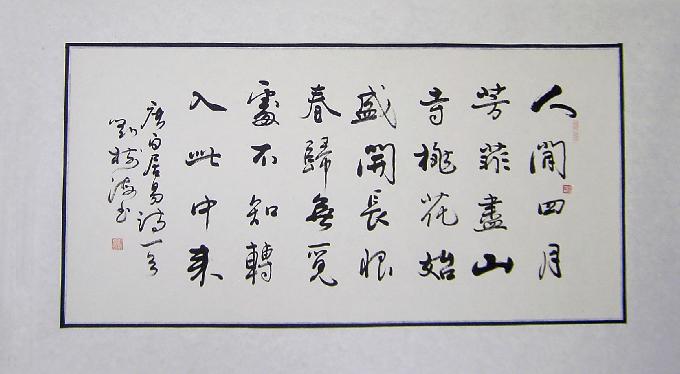 人間四月
芳菲盡山
寺桃花始
盛開長恨
春歸無覓
處不知轉
入此中來
唐白居易詩一首
劉樹海書